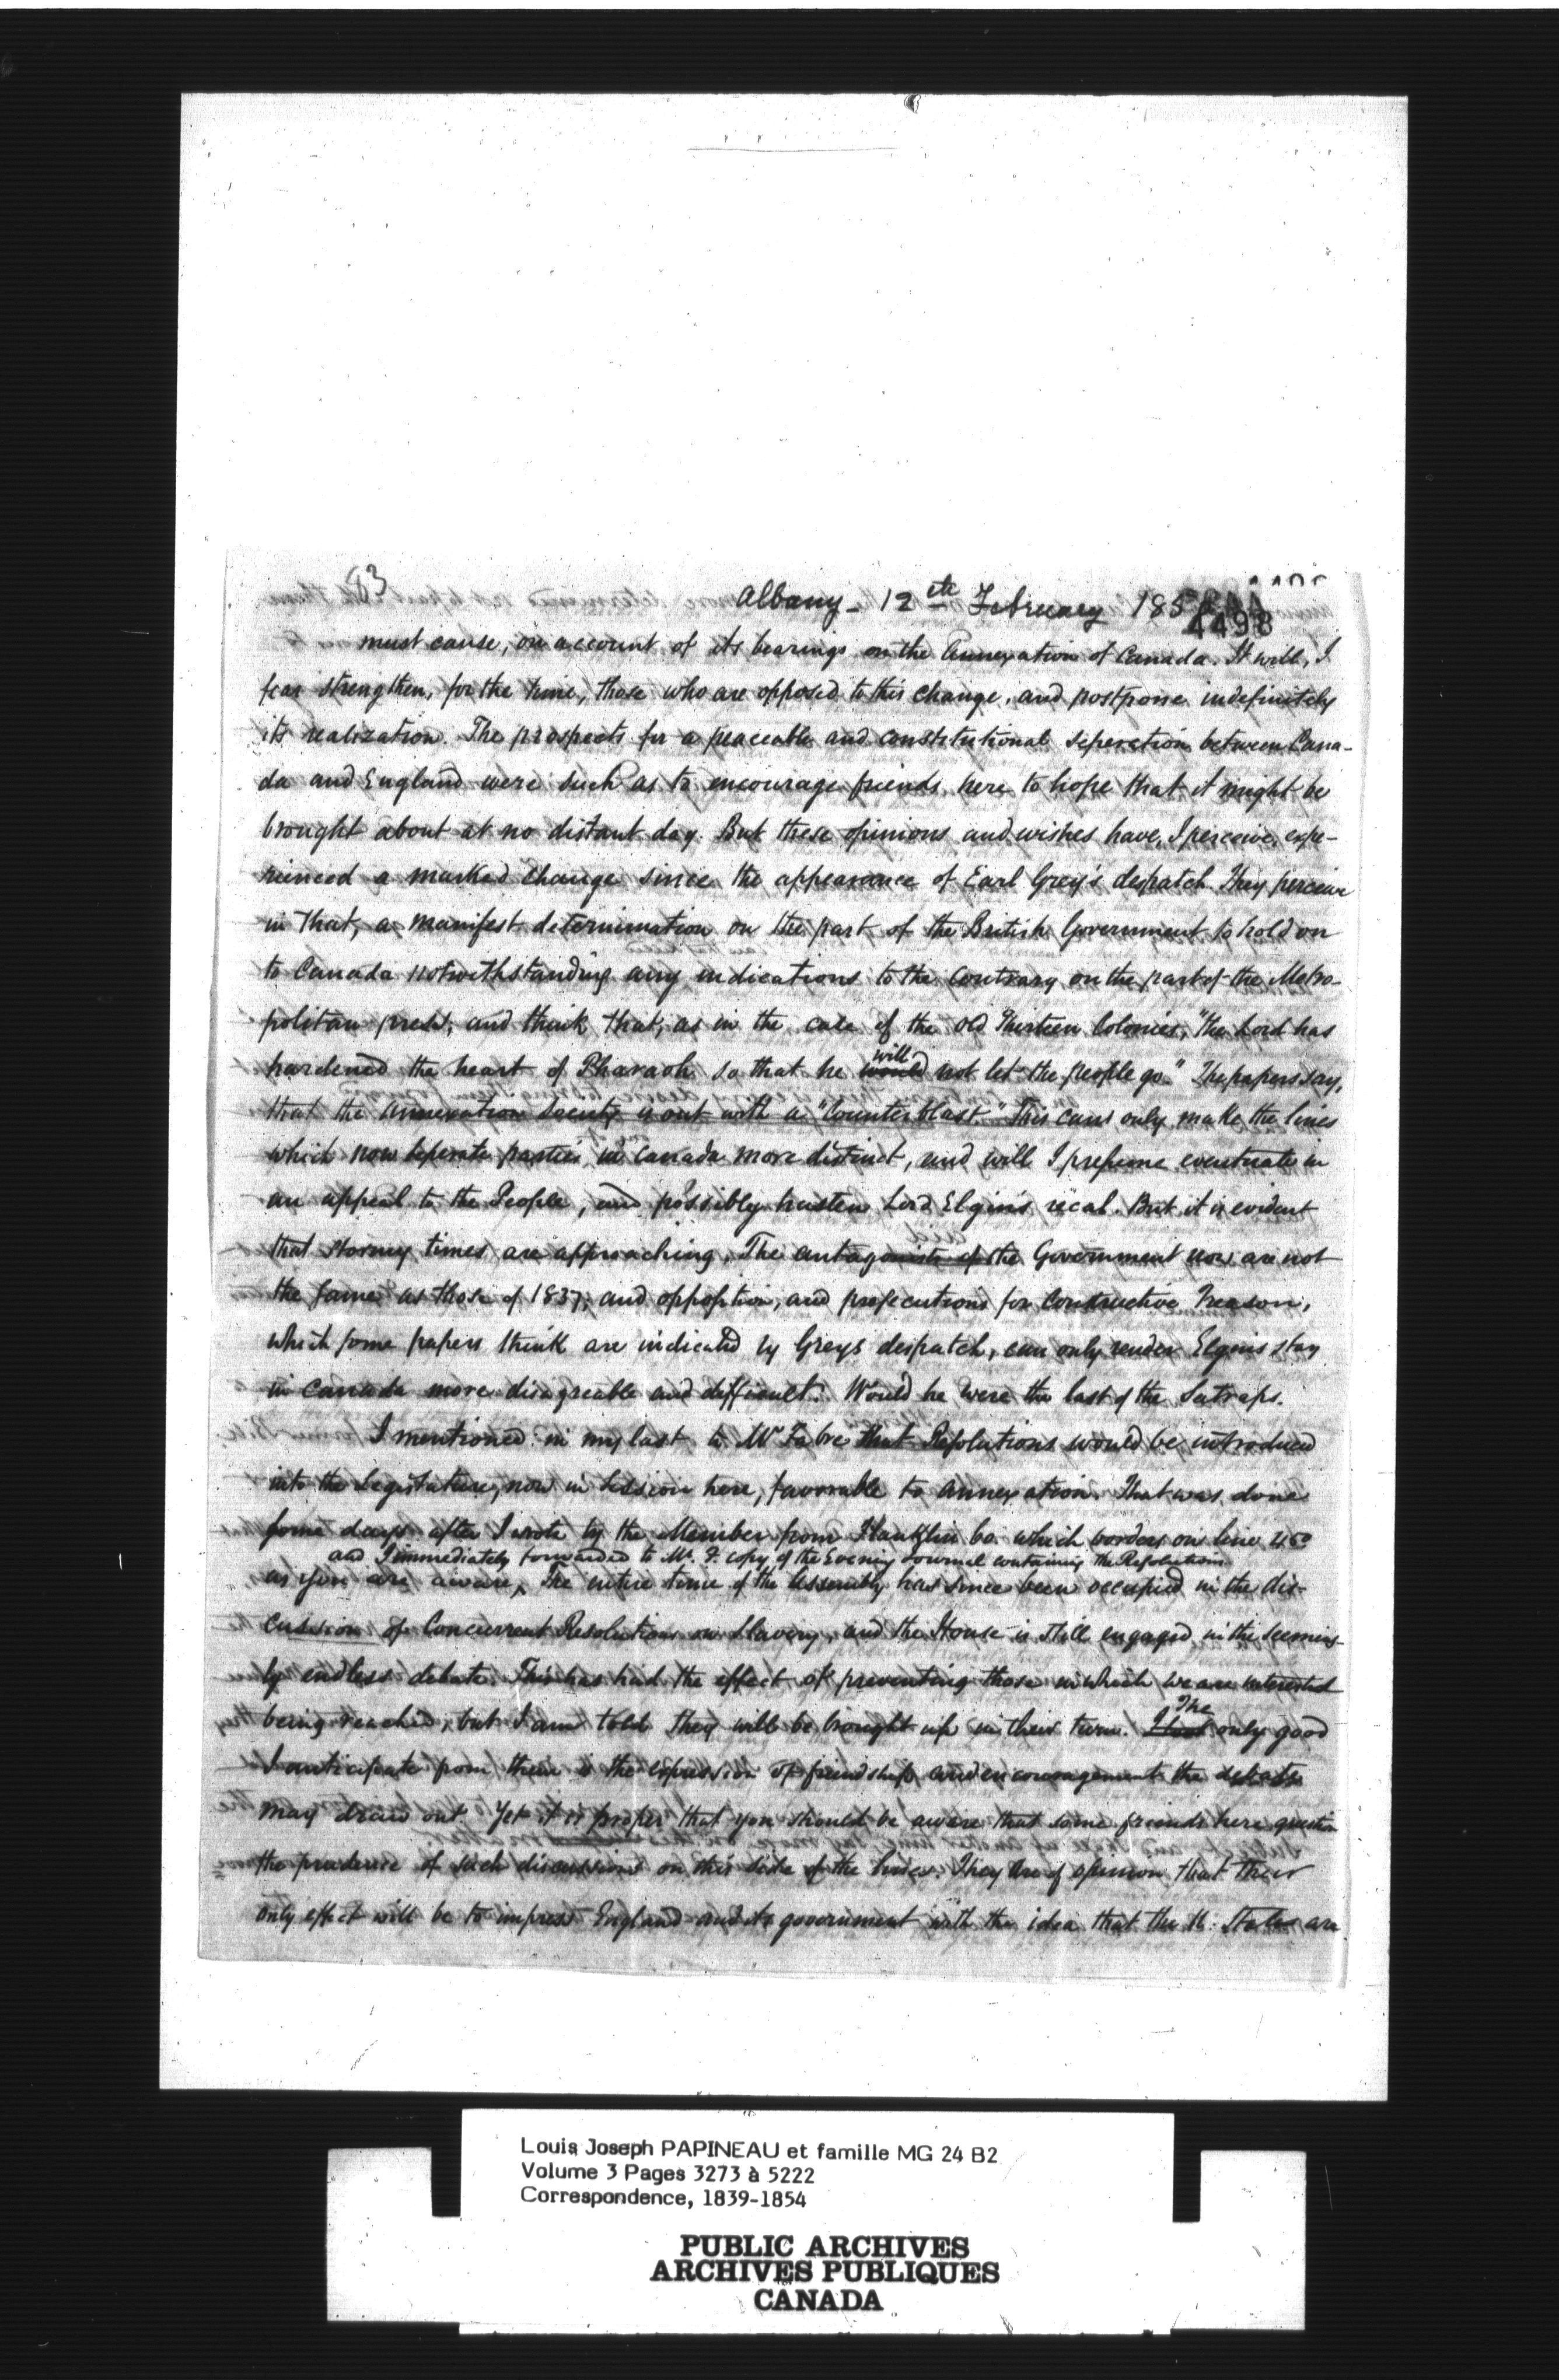 83
Albany - 12th February 185
4498
must cause, on account of its bearings on the Annexation of Canada. It will, I
fear strengthen, for the time, those who are opposed to this change, and postpone indefinitely
its realization. The prospects for a peaceable and constitutional seperation between Cana-
da and England were such as to encourage friends here to hope that it might be
brought about at no distant day. But these opinions and wishes have, I perceive, expe-
rienced a marked change since the appearance of Earl Grey's despatch. They perceive
in that, a manifest determination on the part of the British Government to hold on
to Canada notwithstanding any indications to the contrary on the part of the Metro-
politan press, and think that, as in the case of the old Thirteen Colonies, "the Lord has
hardened the heart of Pharaoh so that he would will not let the people go." The papers say,
that the annexation Society is out with a "Counterblast." This can only make the lines
which now seperate parties in Canada more distinct, and will I presume eventuate in
an appeal to the People, and possibly hasten Lord Elgin's recal. But it is evident
that stormy times are approaching. The antagonists of the Government now are not
the same as those of 1837, and opposition, and prosecutions for Constructive Treason,
which some papers think are indicated by Greys despatch, can only render Elgins stay
in Canada more disagreable and difficult. Would he were the last of the Satraps.
I mentioned in my last to Mr Fabre that Resolutions would be introduced
into the Legislature, now in session here, favorable to annexation. That was done
some days after I wrote by the Member from Franklin Co. which borders on line 45°
and I immediately forwarded to Mr. F. copy of the Evening Journal containing the Resolutions
as you are aware, The entire time of the Assembly has since been occupied in the dis-
cussion of Concurrent Resolutions on Slavery, and the House is still engaged in the seeming-
ly endless debate. This has had the effect of preventing those in which we are interested
being reached, but I am told they will be brought up in their turn. The only good
I anticipate from them is the expression of friendship and encouragement the debate
may draw out. Yet it is proper that you should be aware that some friends here question
the prudence of such discussions on this side of the lines. They are of opinion that their
only effect will be to impress England and its government with the idea that the U. States are
Louis Joseph PAPINEAU et famille MG 24 B2
Volume 3 Pages 3273 à 5222
Correspondence, 1839-1854
PUBLIC ARCHIVES
ARCHIVES PUBLIQUES
CANADA